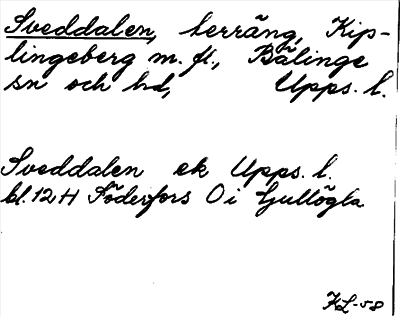 Sveddalen, terräng, Kip-
lingeberg m. fl., Bälinge
sn och hd, Upps. l.
Sveddalen ek Upps. l.
bl. 12 H Söderfors O i Gullögla
KL-58